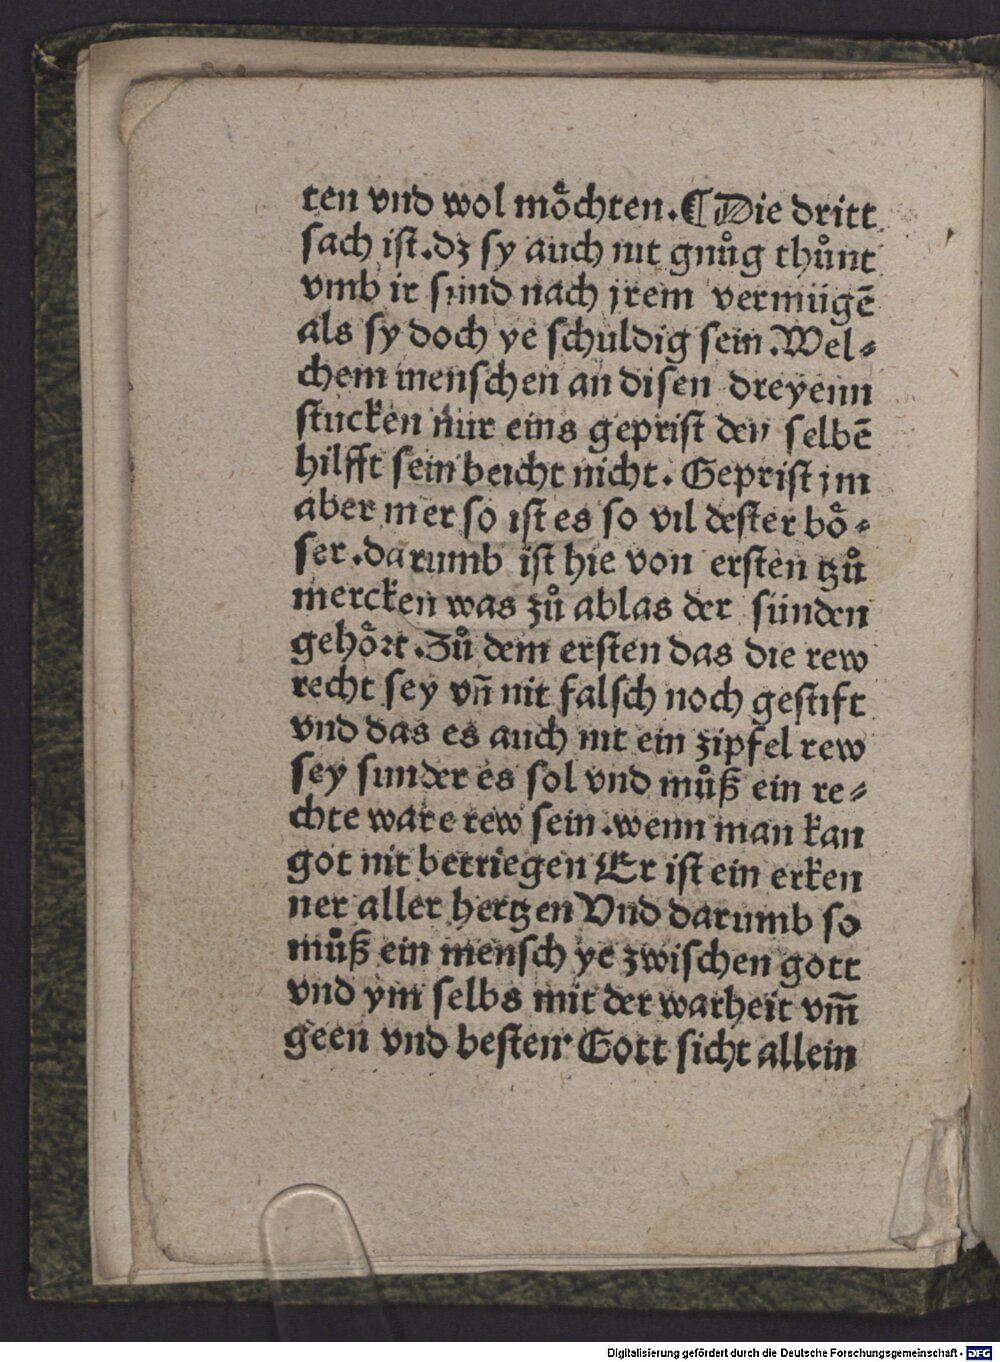 ten vnd wol moͤchten.¶Die dritt
sach ist.dz sy auch nit gnuͦg thuͦnt
vmb ir sünd nach jrem vermügē
als sy doch ye schuldig sein.Wel⸗
chem menschen an disen dreyenn
stucken nur eins geprist den selbē
hilfft sein beicht nicht. Geprist jm
aber mer so ist es so vil dester boͤ⸗
ser.darumb ist hie von ersten tzuͦ
mercken was zuͦ ablas der sünden
gehoͤrt.Zuͦ dem ersten das die rew
recht sey vn̄ nit falsch noch gestift
vnd das es auch nit ein zipfel rew
sey sunder es sol vnd muͦß ein re⸗
chte ware rew sein.wenn man kan
got nit betriegen Er ist ein erken
ner aller hertzen Vnd darumb so
muͦß ein mensch ye zwischen gott
vnd ym selbs mit der warheit vm̄
geen vnd besten Gott sicht allein
Digitalisierung gefördert durch die Deutsche Forschungsgemeinschaft - DFG